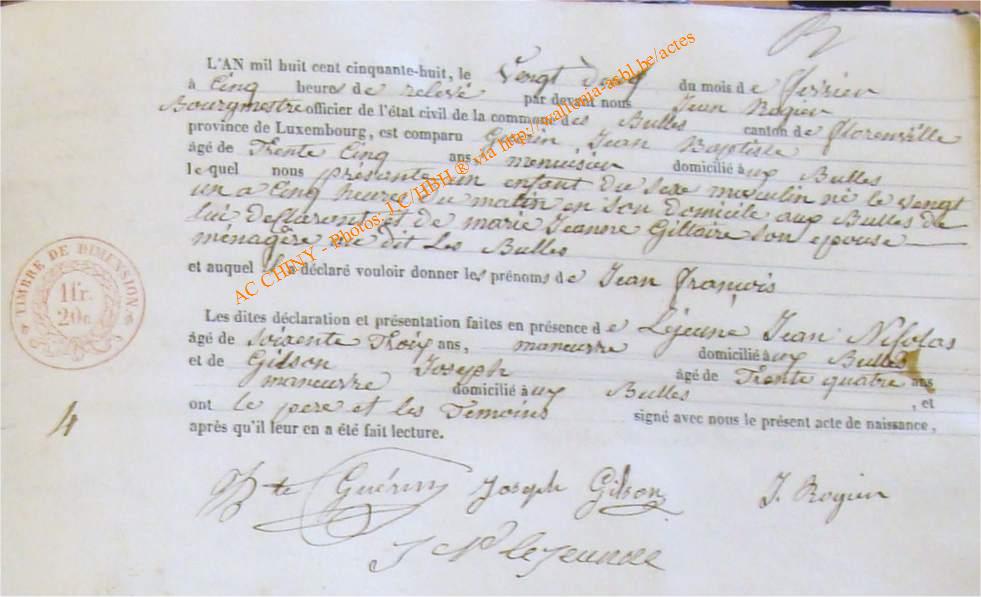 L'AN mil huit cent cinquante-huit, le Vengt du mois de fevrier
à Cinq heures de relevé par devant nous Jean Rogier
Bourgmestre officier de l'état civil de la commune des Bulles canton de florenville
province de Luxembourg, est comparu Guerin, Jean Baptiste
âgé de Trente Cinq ans menuisier domicilié aux Bulles
lequel nous présente un enfant du sexe masculin né le vengt
un a Cinq heures du matin en son domicile aux Bulles de
lui declarent et de marie Jeanne Gillaire son epouse
ménagère dit Les Bulles
et auquel il a déclaré vouloir donner les prénoms de Jean françois
TIMBRE DE DIMENSION
1fr.
20c.
Les dites déclaration et présentation faites en présence de Lejeune Jean Nicolas
âgé de Soixente Troix ans, maneuvre domicilié aux Bulles
et de Gilson Joseph âgé de Trente quatre ans
maneuvre domicilié aux Bulles , et
ont le pere et les Temoins signé avec nous le présent acte de naissance,
après qu'il leur en a été fait lecture.
4
Bte Guérin Joseph Gilson J. Rogier
J Ns lejeune
AC CHINY - Photos: J.C/HBH ® via http://wallonia-asbl.be/actes